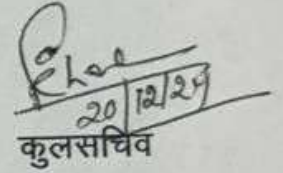 20/12/24
कुलसचिव